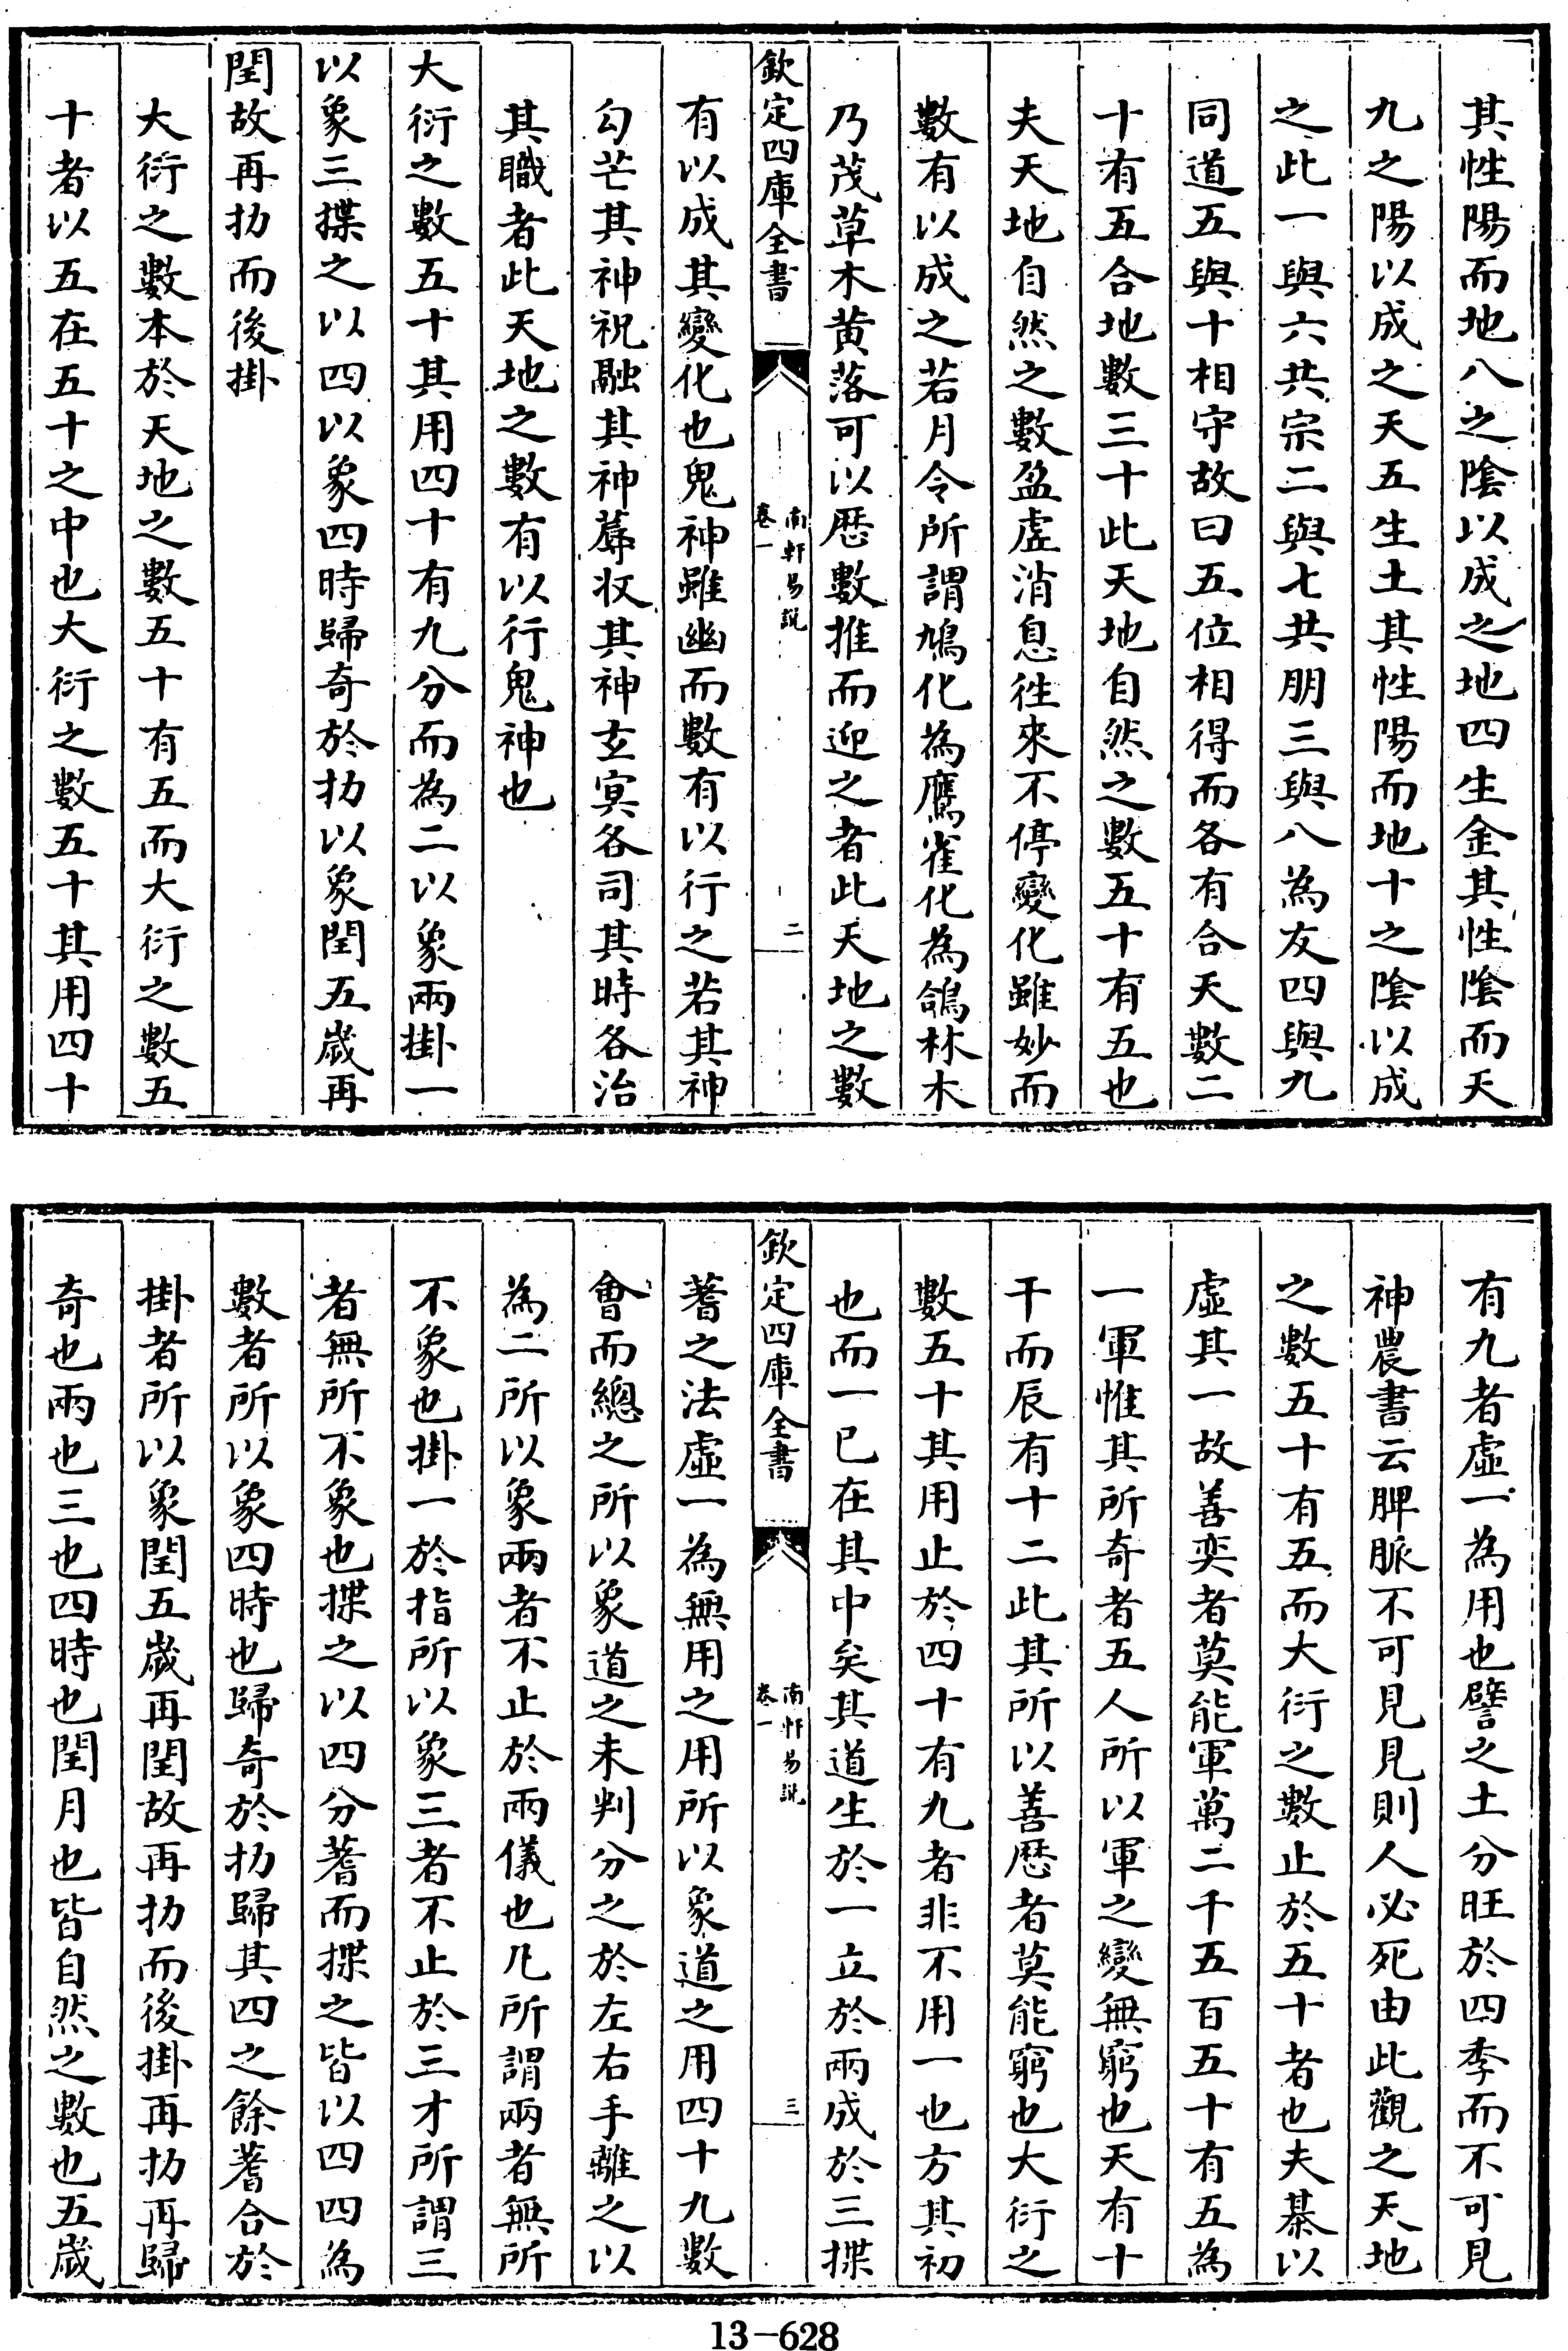 其性陽而地八之陰以成之地四生金其性陰而天
九之陽以成之天五生土其性陽而地十之陰以成
之此一與六共宗二與七共朋三與八為友四與九
同道五與十相守故曰五位相得而各有合天數二
十有五合地數三十此天地自然之數五十有五也
夫天地自然之數盈虛消息往來不停變化雖妙而
數有以成之若月令所謂鳩化為鷹雀化為鴿林木
乃茂草木黄落可以歴數推而迎之者此天地之數
欽定四庫全書
南軒易說
卷一
二
有以成其變化也鬼神雖幽而數有以行之若其神
勾芒其神祝融其神蓐收其神玄冥各司其時各治
其職者此天地之數有以行鬼神也
大衍之數五十其用四十有九分而為二以象兩掛一
以象三揲之以四以象四時歸奇於扐以象閏五歲再
閏故再扐而後掛
大衍之數本於天地之數五十有五而大衍之數五
十者以五在五十之中也大衍之數五十其用四十
有九者虛一為用也譬之土分旺於四季而不可見
神農書云脾脈不可見見則人必死由此觀之天地
之數五十有五而大衍之數止於五十者也夫棊以
虛其一故善奕者莫能軍萬二千五百五十有五為
一軍惟其所奇者五人所以軍之變無窮也天有十
干而辰有十二此其所以善歴者莫能窮也大衍之
數五十其用止於四十有九者非不用一也方其初
也而一已在其中矣其道生於一立於兩成於三揲
欽定四庫全書
南軒易說
卷一
三
蓍之法虛一為無用之用所以象道之用四十九數
會而總之所以象道之未判分之於左右手離之以
為二所以象兩者不止於兩儀也凡所謂兩者無所
不象也掛一於指所以象三者不止於三才所謂三
者無所不象也揲之以四分蓍而揲之皆以四四為
數者所以象四時也歸奇於扐歸其四之餘蓍合於
掛者所以象閏五歲再閏故再扐而後掛再扐再歸
奇也兩也三也四時也閏月也皆自然之數也五歲
13-628